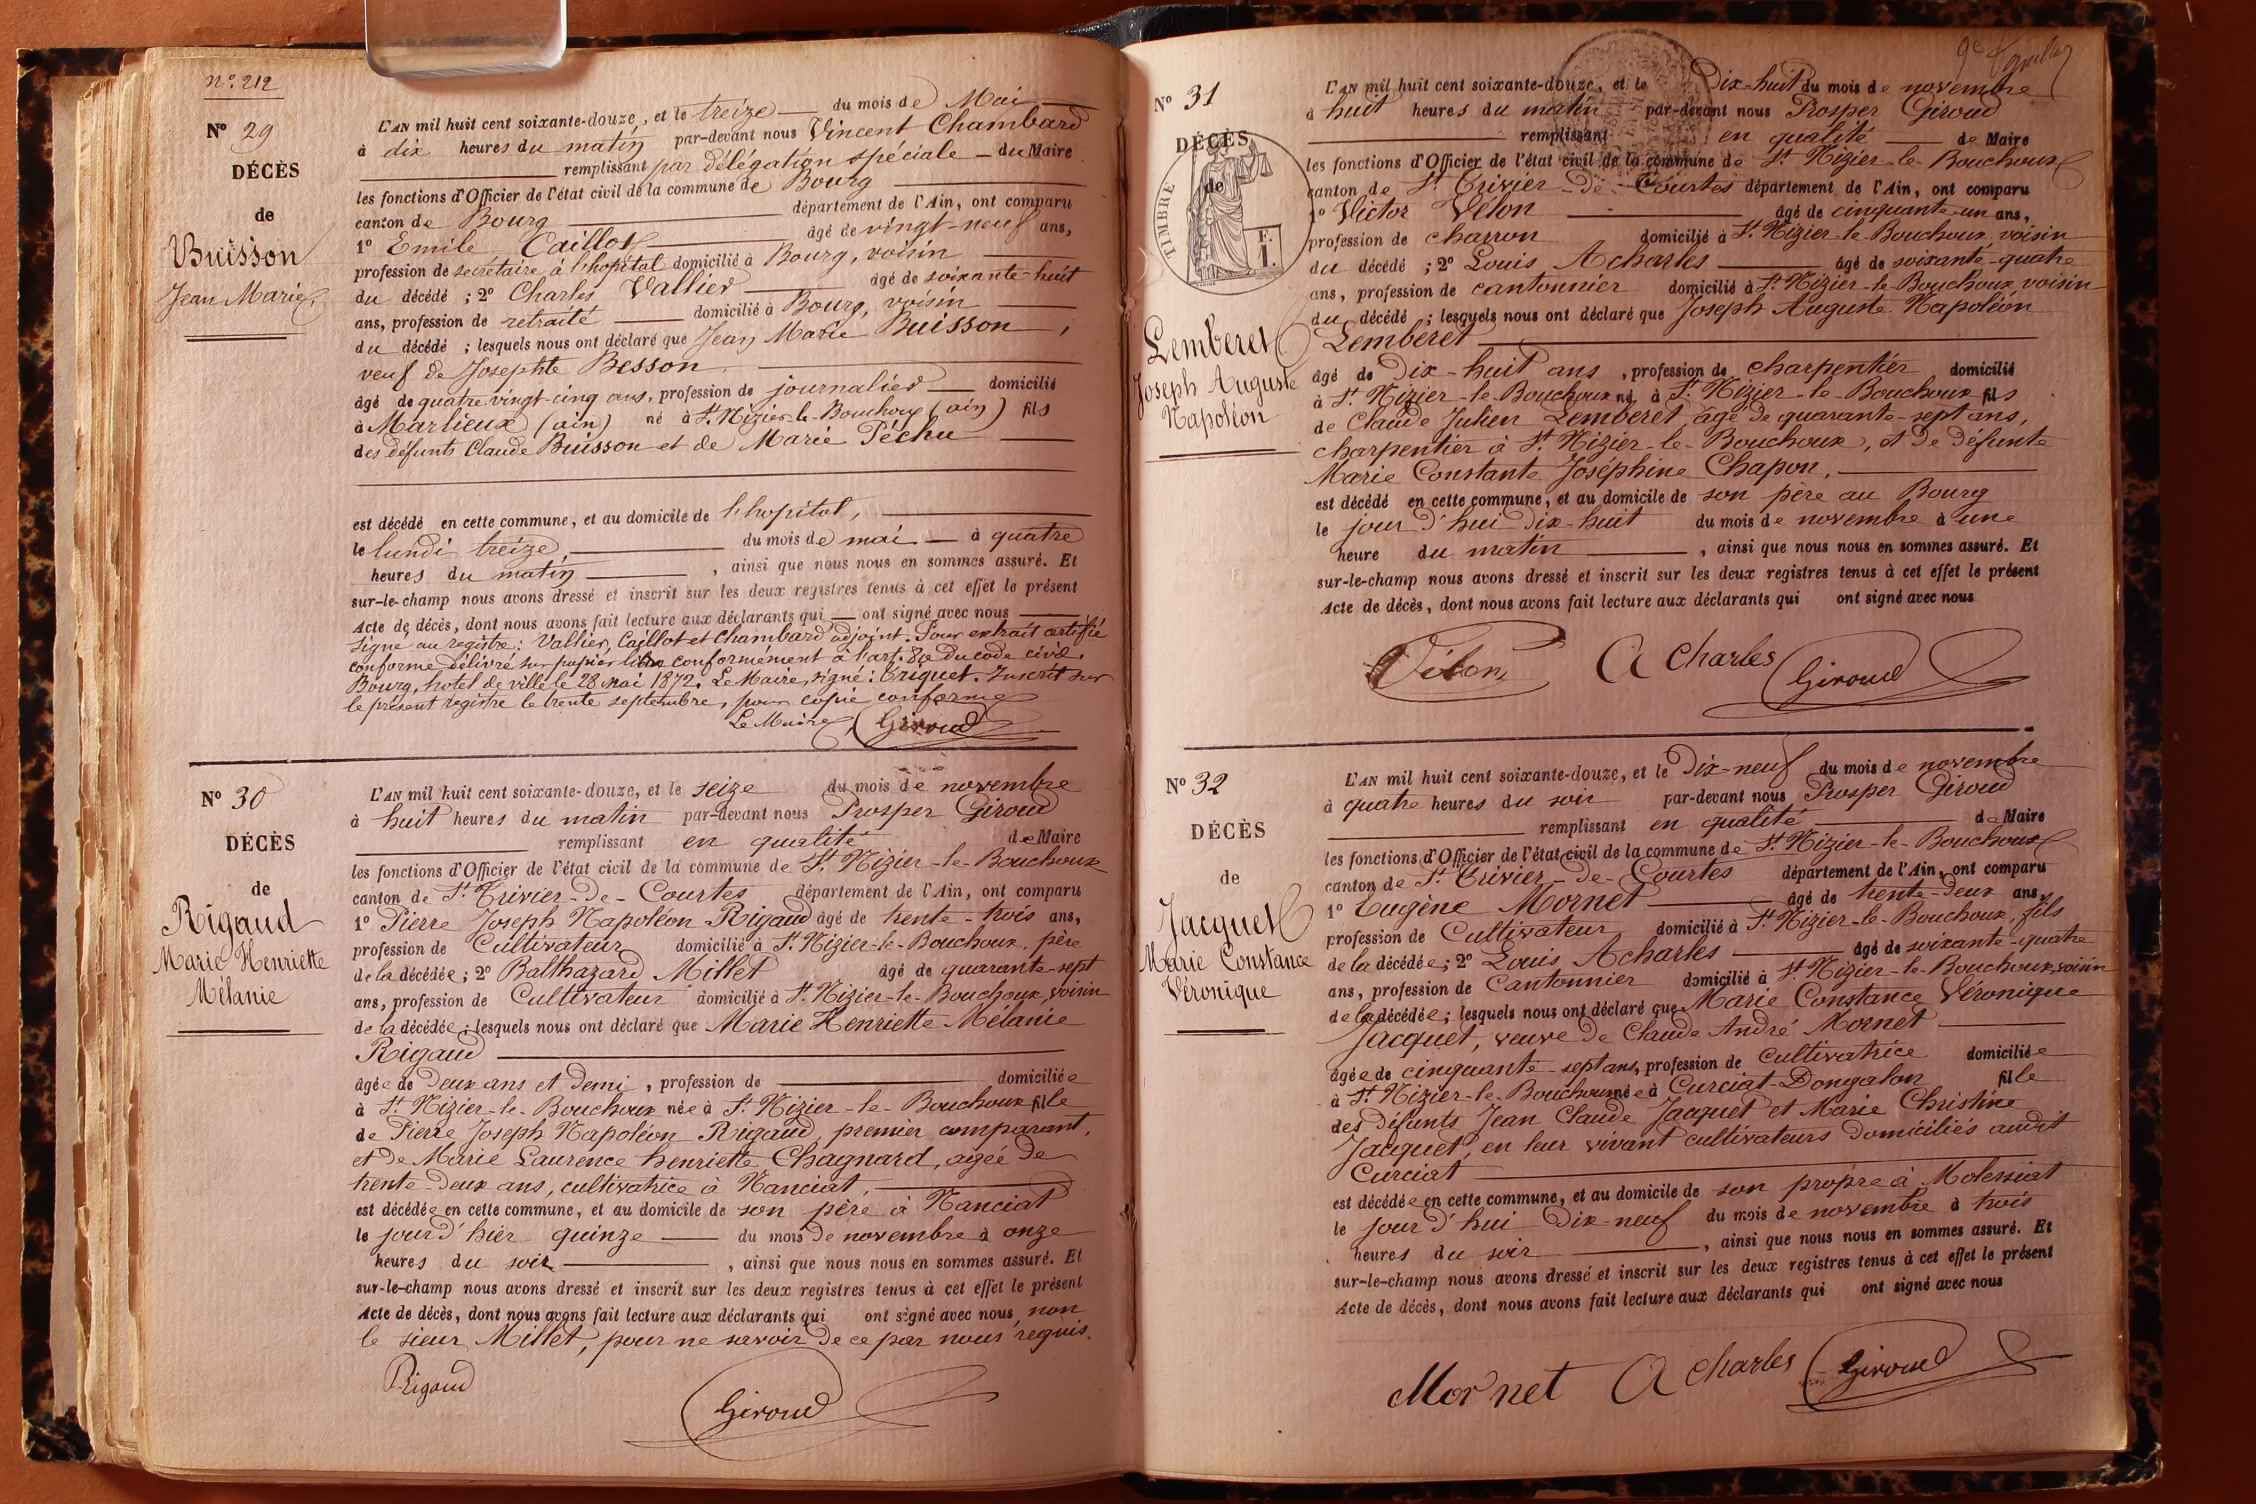 n° 212
N° 29
DÉCÈS
de
Buisson
Jean Marie
L'AN mil huit cent soixante-douze, et le treize du mois de Mai
à dix heures du matin par-devant nous Vincent Chambard
remplissant par délégation spéciale du Maire
les fonctions d'Officier de l'état civil de la commune de Bourg
canton de Bourg département de l'Ain, ont comparu
1° Emile Caillot âgé de vingt-neuf ans,
profession de secrétaire à l'hopital domicilié à Bourg, voisin
du décédé ; 2° Charles Vallier âgé de soixante-huit
ans, profession de retraité domicilié à Bourg, voisin
du décédé ; lesquels nous ont déclaré que Jean Marie Buisson,
veuf de Josephte Besson
âgé de quatre vingt-cinq ans, profession de journalier domicilié
à Marlieux (ain) né à St Nizier-le-Bouchoux (ain) fils
des défunts Claude Buisson et de Marie Péchu
est décédé en cette commune, et au domicile de l'hopital,
le lundi treize, du mois de mai à quatre
heures du matin, ainsi que nous nous en sommes assuré. Et
sur-le-champ nous avons dressé et inscrit sur les deux registres tenus à cet effet le présent
Acte de décès, dont nous avons fait lecture aux déclarants qui ont signé avec nous
signé au registre : Vallier, Caillot et Chambard adjoint. Pour extrait certifié
conforme délivré sur papier libre conformément à l'art. 80 du code civil.
Bourg, hotel de ville le 28 mai 1872. Le Maire, signé : Inscrit sur
le présent registre le trente septembre, pour copie conforme
Le Maire, Giroud
N° 30
DÉCÈS
de
Rigaud
Marie Henriette
Mélanie
L'AN mil huit cent soixante-douze, et le seize du mois de novembre
à huit heures du matin par-devant nous Prosper Giroud
remplissant en qualité de Maire
les fonctions d'Officier de l'état civil de la commune de St Nizier-le-Bouchoux
canton de St Trivier-de-Courtes département de l'Ain, ont comparu
1° Pierre Joseph Napoléon Rigaud âgé de trente-trois ans,
profession de Cultivateur domicilié à St Nizier-le-Bouchoux, père
de la décédée ; 2° Balthazard Millet âgé de quarante-sept
ans, profession de Cultivateur domicilié à St Nizier-le-Bouchoux, voisin
de la décédée ; lesquels nous ont déclaré que Marie Henriette Mélanie
Rigaud
âgée de deux ans et demi, profession de domiciliée
à St Nizier-le-Bouchoux née à St Nizier-le-Bouchoux fille
de Pierre Joseph Napoléon Rigaud, premier comparant,
et de Marie Laurence henriette Chagnard, agée de
trente-deux ans, cultivatrice à Nanciat,
est décédée en cette commune, et au domicile de son père à Nanciat
le jour d'hier quinze du mois de novembre à onze
heures du soir, ainsi que nous nous en sommes assuré. Et
sur-le-champ nous avons dressé et inscrit sur les deux registres tenus à cet effet le présent
Acte de décès, dont nous avons fait lecture aux déclarants qui ont signé avec nous, non
le sieur Millet, pour ne savoir de ce par nous requis.
Rigaud Giroud
N° 31
DÉCÈS
de
TIMBRE
F.
1.
Lemberet
Joseph Auguste
Napoléon
L'AN mil huit cent soixante-douze, et le Dix-huit du mois de novembre
à huit heures du matin par-devant nous Prosper Giroud
remplissant en qualité de Maire
les fonctions d'Officier de l'état civil de la commune de St Nizier-le-Bouchoux
canton de St Trivier-de-Courtes département de l'Ain, ont comparu
1° Victor Vélon âgé de cinquante-un ans,
profession de charron domicilié à St Nizier-le-Bouchoux, voisin
du décédé ; 2° Louis Acharles âgé de soixante-quatre
ans, profession de cantonnier domicilié à St Nizier-le-Bouchoux, voisin
du décédé ; lesquels nous ont déclaré que Joseph Auguste Napoléon
Lemberet
âgé de Dix-huit ans, profession de charpentier domicilié
à St Nizier-le-Bouchoux né à St Nizier-le-Bouchoux fils
de Claude Julien Lemberet, agé de quarante-sept ans,
charpentier à St Nizier-le-Bouchoux, et de défunte
Marie Constante Joséphine Chapon,
est décédé en cette commune, et au domicile de son père au Bourg
le jour d'hui Dix-huit du mois de novembre à une
heure du matin, ainsi que nous nous en sommes assuré. Et
sur-le-champ nous avons dressé et inscrit sur les deux registres tenus à cet effet le présent
Acte de décès, dont nous avons fait lecture aux déclarants qui ont signé avec nous
Vélon A charles Giroud
N° 32
DÉCÈS
de
Jacquet
Marie Constance
Véronique
L'AN mil huit cent soixante-douze, et le Dix-neuf du mois de novembre
à quatre heures du soir par-devant nous Prosper Giroud
remplissant en qualité de Maire
les fonctions d'Officier de l'état civil de la commune de St Nizier-le-Bouchoux
canton de St Trivier-de-Courtes département de l'Ain, ont comparu
1° Eugène Mornet âgé de trente-deux ans,
profession de Cultivateur domicilié à St Nizier-le-Bouchoux, fils
de la décédée ; 2° Louis Acharles âgé de soixante-quatre
ans, profession de Cantonnier domicilié à St Nizier-le-Bouchoux, voisin
de la décédée ; lesquels nous ont déclaré que Marie Constance Véronique
Jacquet, veuve de Claude André Mornet
âgée de cinquante-sept ans, profession de cultivatrice domiciliée
à St Nizier-le-Bouchoux née à Curciat-Dongalon fille
des défunts Jean Claude Jacquet et Marie Christine
Jacquet, en leur vivant cultivateurs domiciliés audit
Curciat
est décédée en cette commune, et au domicile de son propre à Molessiat
le jour d'hui Dix-neuf du mois de novembre à trois
heures du soir, ainsi que nous nous en sommes assuré. Et
sur-le-champ nous avons dressé et inscrit sur les deux registres tenus à cet effet le présent
Acte de décès, dont nous avons fait lecture aux déclarants qui ont signé avec nous
Mornet A charles Giroud